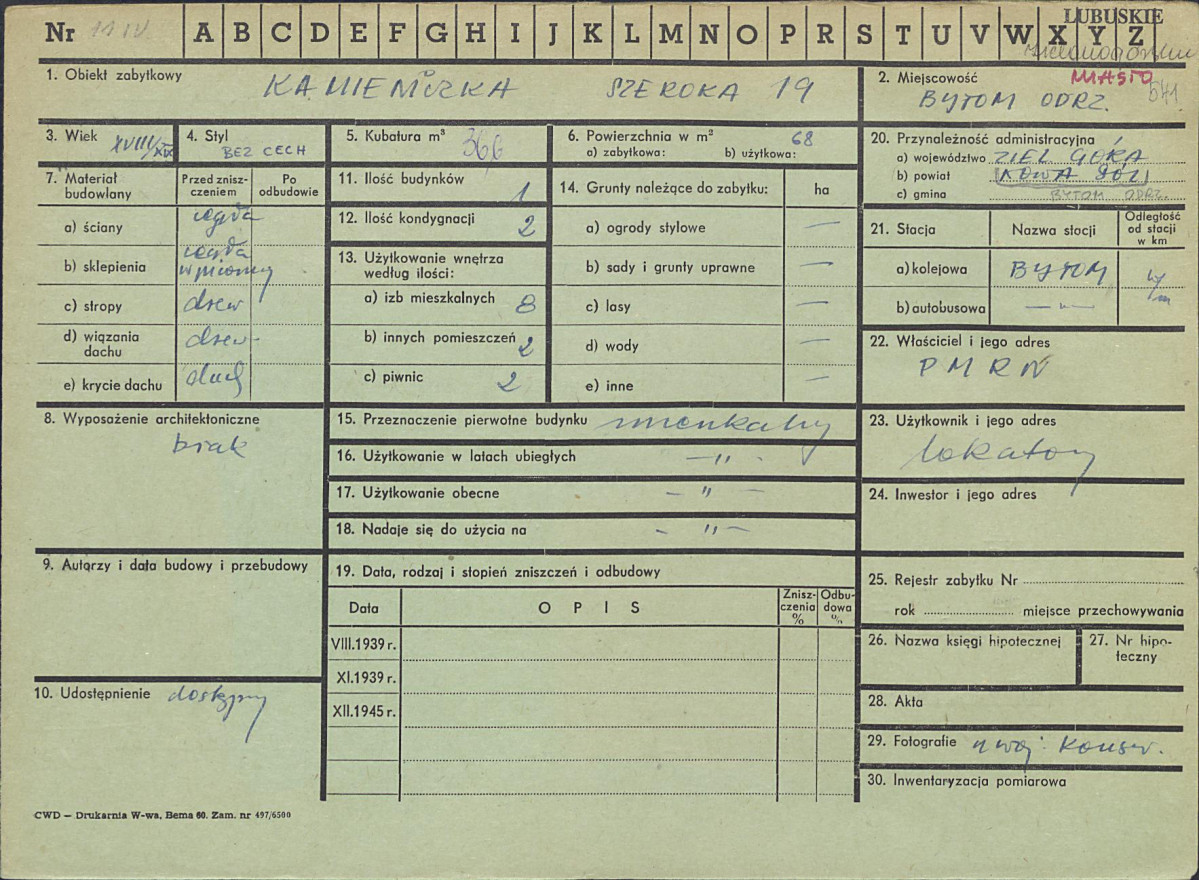 Nr 11 IV A B C D E F G H I J K L M N O P R S T U V W X Y Z LUBUSKIE
zielonogórskie
1. Obiekt zabytkowy KAMIENICZKA SZEROKA 19
2. Miejscowość MIASTO 541
BYTOM ODRZ.
3. Wiek XVIII/XIX
4. Styl BEZ CECH
5. Kubatura m³ 366
6. Powierzchnia w m² 68
a) zabytkowa: b) użytkowa:
7. Materiał budowlany
Przed znisz-
czeniem
Po
odbudowie
a) ściany cegła
b) sklepienia cegła
w piwnicy
c) stropy drew
d) wiązania
dachu drew
e) krycie dachu dach
8. Wyposażenie architektoniczne
brak
9. Autorzy i data budowy i przebudowy
10. Udostępnienie dostępny
11. Ilość budynków 1
12. Ilość kondygnacji 2
13. Użytkowanie wnętrza
według ilości:
a) izb mieszkalnych 8
b) innych pomieszczeń 2
c) piwnic 2
14. Grunty należące do zabytku: ha
a) ogrody stylowe —
b) sady i grunty uprawne —
c) lasy —
d) wody —
e) inne —
15. Przeznaczenie pierwotne budynku mieszkalny
16. Użytkowanie w latach ubiegłych — " -
17. Użytkowanie obecne — " —
18. Nadaje się do użycia na - " —
19. Data, rodzaj i stopień zniszczeń i odbudowy
Data OPIS
Znisz-
czenia
%
Odbu-
dowa
%
VIII.1939 r.
XI.1939 r.
XII.1945 r.
20. Przynależność administracyjna
a) województwo ZIEL GÓRA
b) powiat NOWA SÓL
c) gmina BYTOM ODRZ.
21. Stacja Nazwa stocji
Odległość
od stacji
w km
a) kolejowa BYTOM
b) autobusowa — " —
22. Właściciel i jego adres
PMRN
23. Użytkownik i jego adres
lokatorzy
24. Inwestor i jego adres
25. Rejestr zabytku Nr
rok miejsce przechowywania
26. Nazwa księgi hipotecznej
27. Nr hipo-
teczny
28. Akta
29. Fotografie u woj. Konserw.
30. Inwentaryzacja pomiarowa
CWD — Drukarnia W-wa, Bema 60. Zam. nr 497/6500